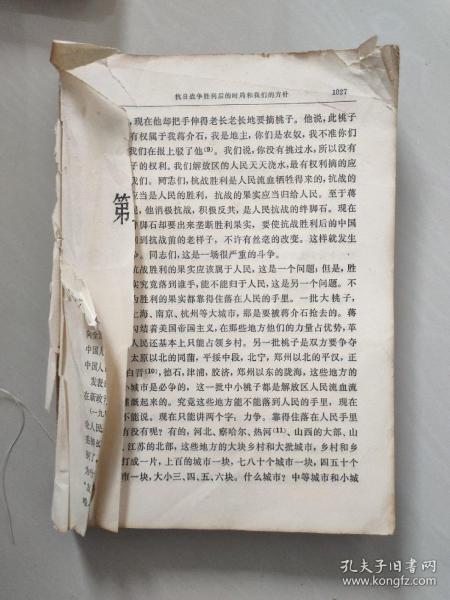 抗日战争胜利后的时局和我们的方针
1027
,现在他却把手伸得老长老长地要摘桃子。他说,此桃子
有权属于我蒋介石,我是地主,你们是农奴,我不准你们
我们在报上驳了他(9)。我们说,你没有挑过水,所以没有
子的权利。我们解放区的人民天天浇水,最有权利摘的应
我们。同志们,抗战胜利是人民流血牺牲得来的,抗战的
应当是人民的胜利,抗战的果实应当归给人民。至于蒋
他消极抗战,积极反共,是人民抗战的绊脚石。现在
个脚石却要出来垄断胜利果实,要使抗战胜利后的中国
回到抗战前的老样子,不许有丝毫的改变。这样就发生
争。同志们,这是一场很严重的斗争。
抗战胜利的果实应该属于人民,这是一个问题;但是,胜
实究竟落到谁手,能不能归于人民,这是另一个问题。不
为胜利的果实都靠得住落在人民的手里。一批大桃子,
上海、南京、杭州等大城市,那是要被蒋介石抢去的。蒋
勾结着美国帝国主义,在那些地方他们的力量占优势,革
人民还基本上只能占领乡村。另一批桃子是双方要争夺
太原以北的同蒲,平绥中段,北宁,郑州以北的平汉,正
白晋(10),他石,津浦,胶济,郑州以东的陇海,这些地方的
小城市是必争的,这一批中小桃子都是解放区人民流血流
灌溉起来的。究竟这些地方能不能落到人民的手里,现在
不能说。现在只能讲两个字:力争。靠得住落在人民手里
有没有呢?有的,河北、察哈尔、热河(11)、山西的大部、山
、江苏的北部,这些地方的大块乡村和大批城市,乡村和乡
打成一片,上百的城市一块,七八十个城市一块,四五十个
市一块,大小三、四、五、六块。什么城市?中等城市和小城
第
中国人
中国人
发表
在新政
(一九
孔夫子旧书网
www.kongfz.com